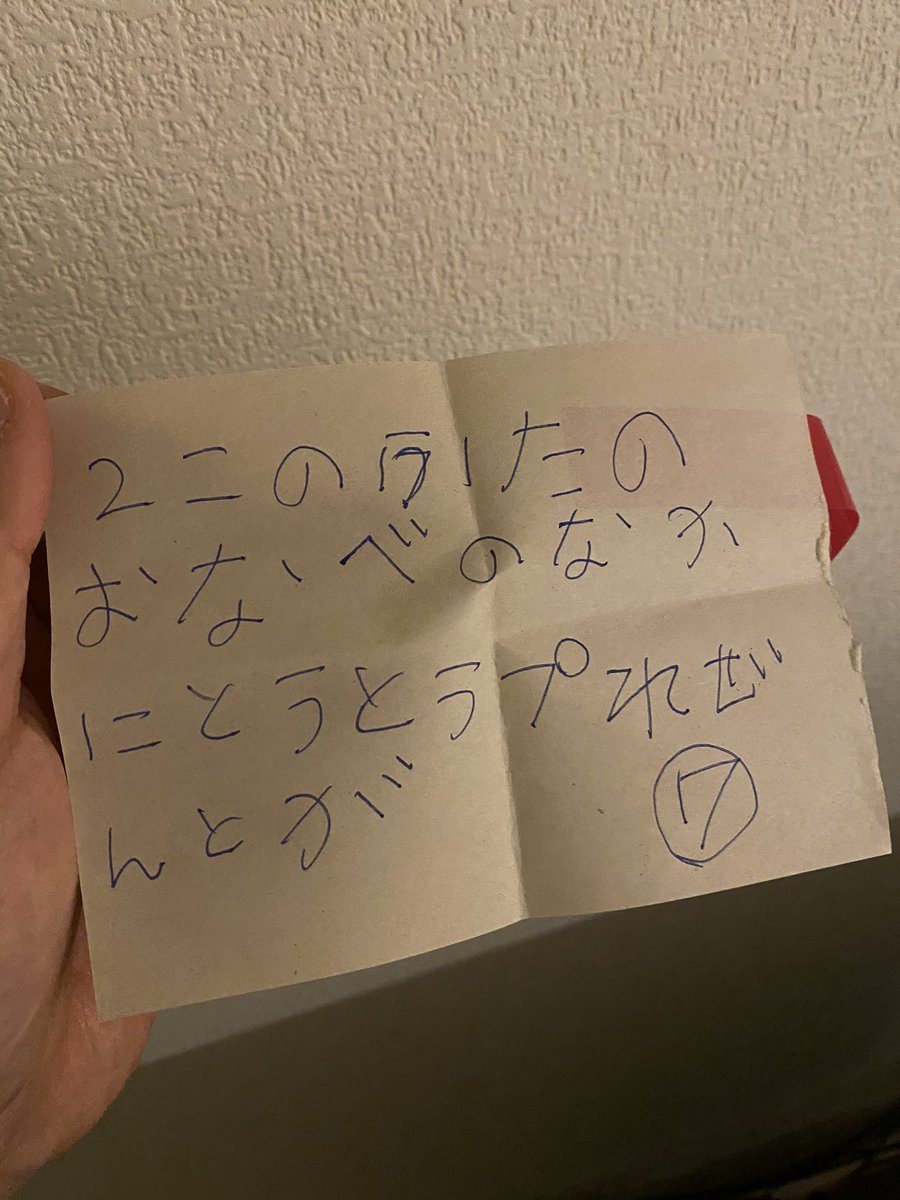 2この たの
おなべのなか
にとうとうプれぜ
んとが ⑦